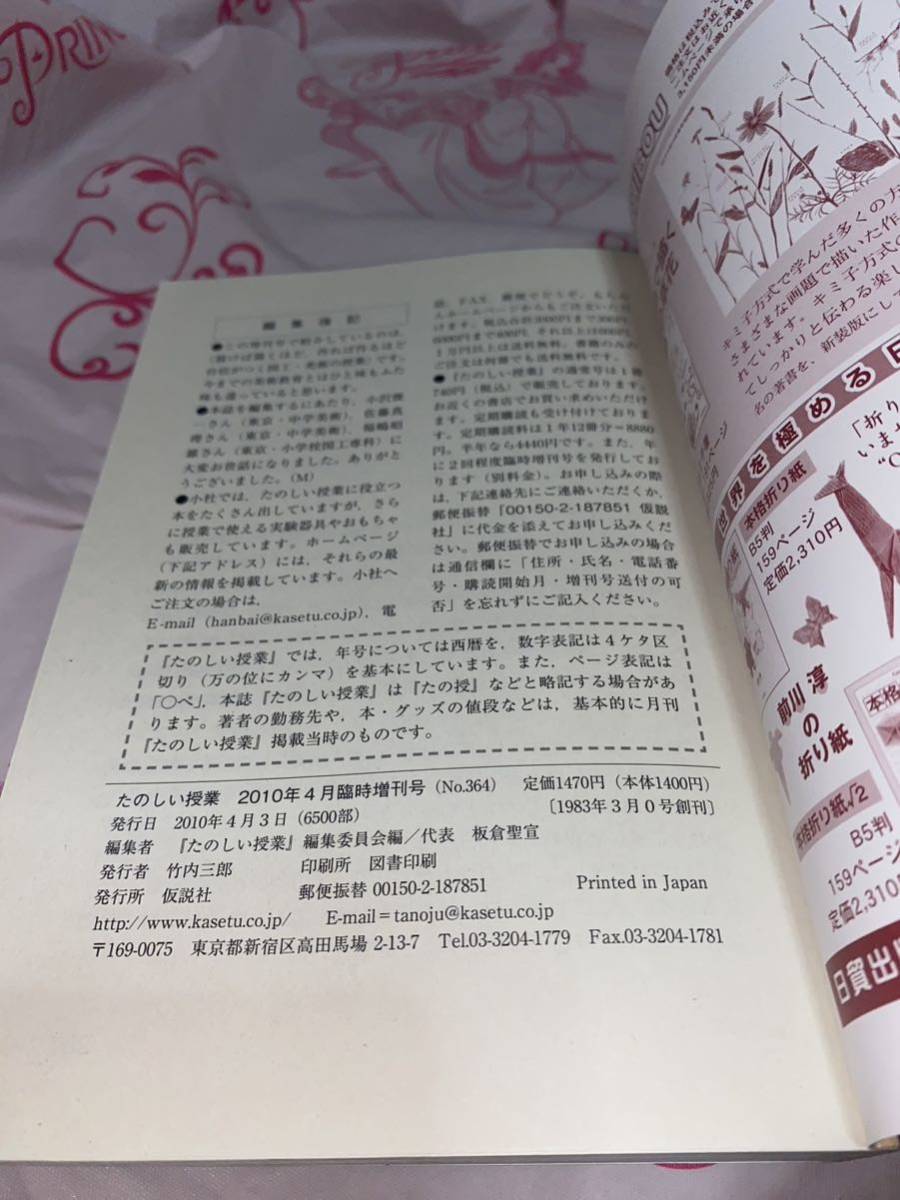 PRIN
編集後記
●この増刊号で紹介しているのは,
「描けば描くほど,作れば作るほど
自信がつく図工・美術の授業」です。
今までの美術教育とはひと味もふた
味も違っていると思います。
●本誌を編集するにあたり,小沢俊
一さん(東京・中学美術),佐藤真
理さん(東京・中学美術),
雄さん(東京・小学校図工専科)に
大変お世話になりました。ありがと
うございました。(M)
●小社では,たのしい授業に役立つ
本をたくさん出していますが,さら
に授業で使える実験器具やおもちゃ
も販売しています。ホームページ
(下記アドレス)には,それらの最
新の情報を掲載しています。小社へ
ご注文の場合は,
E-mail(hanbai@kasetu.co.jp),電
話,FAX,郵便でどうぞ。もちろ
んホームページからもご注文いただ
けます。
1万円以上は送料無料。書籍のみの
ご注文は何冊でも送料無料です。
●『たのしい授業』の通常号は1冊
740円(税込)で販売しております。
お近くの書店でお買い求めいただけ
ます。定期購読も受け付けておりま
す。定期購読料は1年12冊分=8880
円。半年なら4440円です。また,年
に2回程度臨時増刊号を発行してお
ります(別料金)。お申し込みの際
は,下記連絡先にご連絡いただくか,
郵便振替「00150-2-187851 仮説
社」に代金を添えてお申し込みくだ
さい。郵便振替でお申し込みの場合
は通信欄に「住所・氏名・電話番
号・購読開始月・増刊号送付の可
否」を忘れずにご記入ください。
『たのしい授業』では,年号については西暦を,数字表記は4ケタ区
切り(万の位にカンマ)を基本にしています。また,ページ表記は
「○ペ」,本誌『たのしい授業』は『たの授』などと略記する場合があ
ります。著者の勤務先や,本・グッズの値段などは,基本的に月刊
『たのしい授業』掲載当時のものです。
たのしい授業 2010年4月臨時増刊号(No.364) 定価1470円(本体1400円)
発行日 2010年4月3日(6500部) 〔1983年3月0号創刊〕
編集者 『たのしい授業』編集委員会編/代表 板倉聖宣
発行者 竹内三郎 印刷所 図書印刷
発行所 仮説社 郵便振替 00150-2-187851 Printed in Japan
http://www.kasetu.co.jp/ E-mail=tanoju@kasetu.co.jp
〒169-0075 東京都新宿区高田馬場 2-13-7 Tel.03-3204-1779 Fax.03-3204-1781
3,150円未満の場合
キミ子方式で学んだ多くの方
さまざまな画題で描いた作
れています。キミ子方式の
てしっかりと伝わる楽し
名の著書を、新装版にして
世界を極める
本格折り紙
B5判
159ページ
定価2,310円
「折り
いま
“O
前川 淳
の
折り紙
本格折り紙√2
B5判
159ページ
定価2,310
日貿出